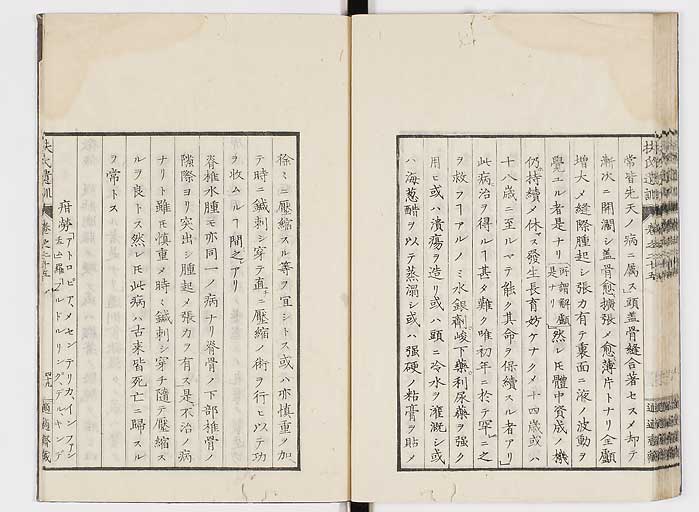 扶氏遺訓 卷之二十五
常皆先天ノ病ニ屬ス」頭蓋骨縫合著セスメ却テ
漸次ニ開濶シ蓋骨愈擴張メ愈薄片トナリ全顱
增大メ縫際腫起シ張力有テ裏面ニ液ノ波動ヲ
覺エル者是ナリ 所謂解顱是ナリ 然レ𪜈體中資成ノ機
仍持續メ休マス發生長育妨ケナクメ十四歳或ハ
十八歳ニ至ルマテ能ク其命ヲ保續スル者アリ」
此病治ヲ得ルヿ甚タ難ク唯初年ニ於テ罕ニ之
ヲ救フヿアルノミ水銀劑峻下藥利尿藥ヲ強ク
用ヒ或ハ潰瘍ヲ造リ或ハ頭ニ冷水ヲ灌漑シ或
ハ海葱醋ヲ以テ蒸溻シ或ハ强硬ノ粘膏ヲ貼メ
徐々ニ壓縮スル等ヲ宜シトス或ハ亦慎重ヲ加
テ時ニ鍼刺シ穿テ直ニ壓縮ノ術ヲ行ヒ以テ功
ヲ收ムルヿ間之アリ
脊椎水腫モ亦同一ノ病ナリ脊骨ノ下部椎骨ノ
隙際ヨリ突出シ腫起メ張力ヲ有ス是不治ノ病
ナリト雖モ慎重メ時々鍼刺シ穿チ隨テ壓縮ス
ルヲ良トス然レ𪜈此病ハ古来皆死亡ニ歸スル
ヲ常トス
疳勞 アトロピア、メセンテリカ、インファンテ 羅
扶氏遺訓 卷之二十五